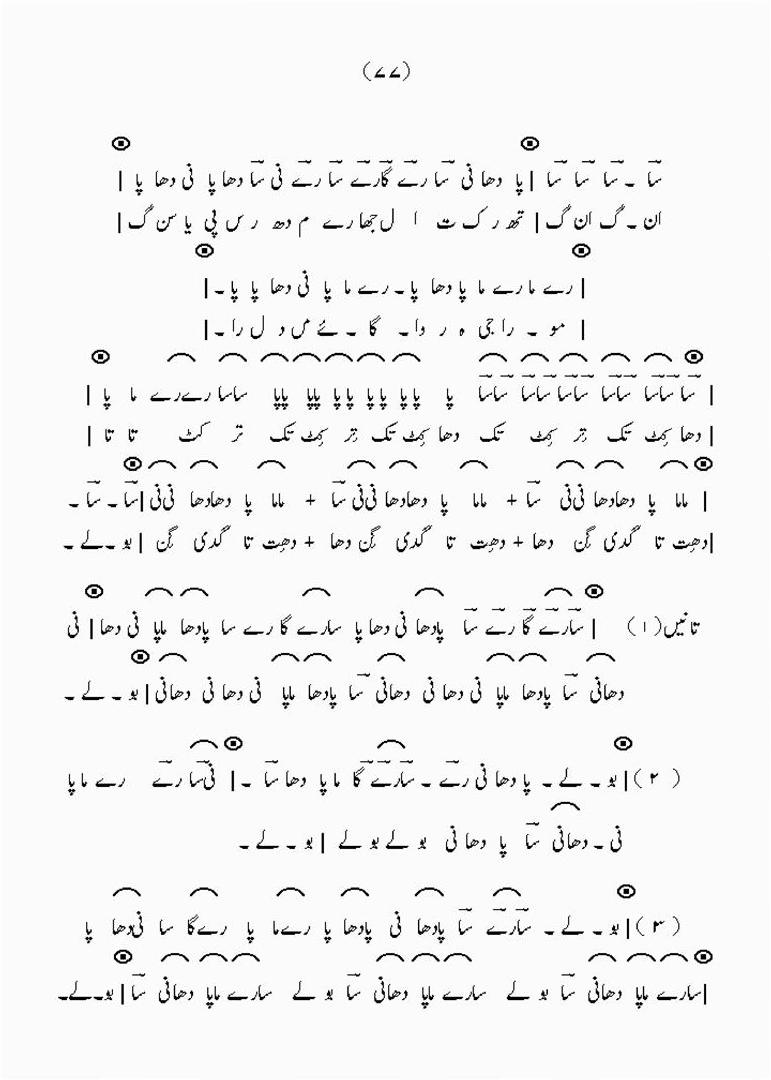 (۷۷)
سا ۔ سا سا سا | پا دھا نی سا رے گارے سا رے نی سا دھا پا نی دھا پا |
ان ۔ گ ان گ | تھ ر ک ت ا ل جھا رے م دھ ر س پی یا سن گ |
| رے ما رے ما پا دھا پا ۔ رے ما پا نی دھا پا پا ۔ |
| مو ۔ را جی ہ ر وا ۔ گا ۔ ئے من د ل را ۔ |
| سا ساسا ساسا ساسا ساسا ساسا پا پاپا پاپا پاپا پاپا پاپا ساسا رےرے ما پا |
| دھا کِٹ تک تِر کِٹ تک دھا کِٹ تک تِر کِٹ تک تر کٹ تا تا |
| ماما پا دھادھا نی‌نی سا + ماما پا دھادھا نی‌نی سا + ماما پا دھادھا نی‌نی | سا ۔ سا ۔
| دھِت تا گدی گِن دھا + دھِت تا گدی گِن دھا + دھِت تا گدی گِن | بو ۔ لے ۔
تانیں (۱) | سارے گا رے سا پادھا نی دھا پا سارے گا رے سا پادھا ماپا نی دھا | نی
دھانی سا پادھا ماپا نی دھا نی دھانی سا پادھا ماپا نی دھا نی دھانی | بو ۔ لے ۔
(۲) | بو ۔ لے ۔ پا دھا نی رے ۔ سارے گا ما پا دھا سا ۔ | نی‌سا رے رے ما پا
نی ۔ دھانی سا پا دھا نی بو لے بو لے | بو ۔ لے ۔
(۳) | بو ۔ لے ۔ سارے سا پادھا نی پادھا پا رےما پا رےگا سا نی‌دھا پا
| سارے ماپا دھانی سا بو لے سارے ماپا دھانی سا بو لے سارے ماپا دھانی سا | بو۔لے۔